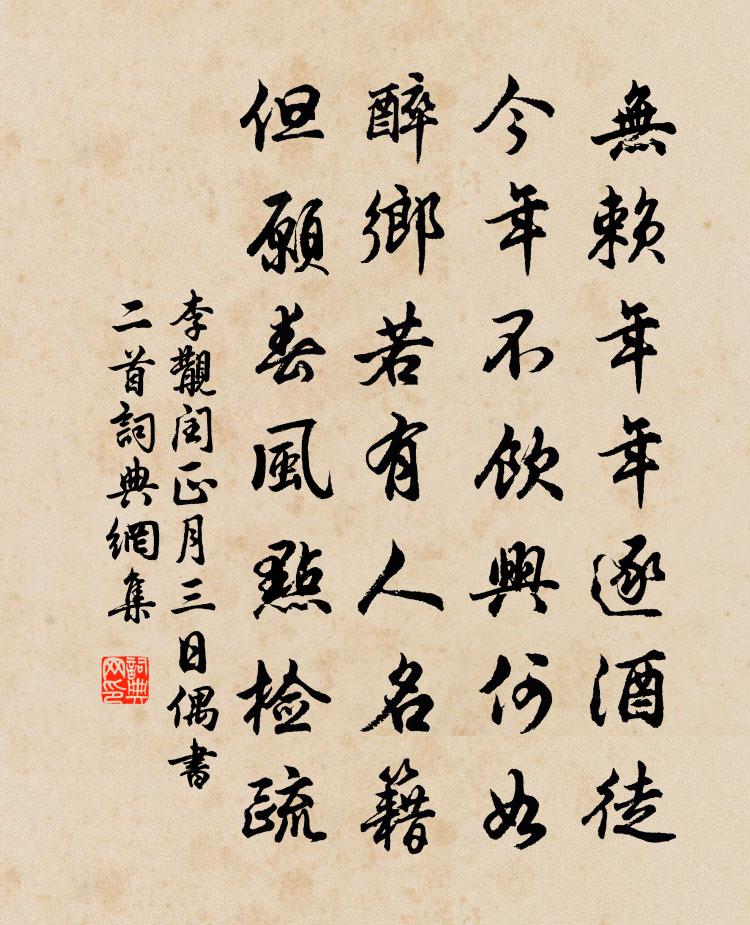 無賴年年逐酒徒
今年不飲興何如
醉鄉若有人名籍
但願春風點檢疏
李覯閏正月三日偶書
二首詞典網集
詞典网印